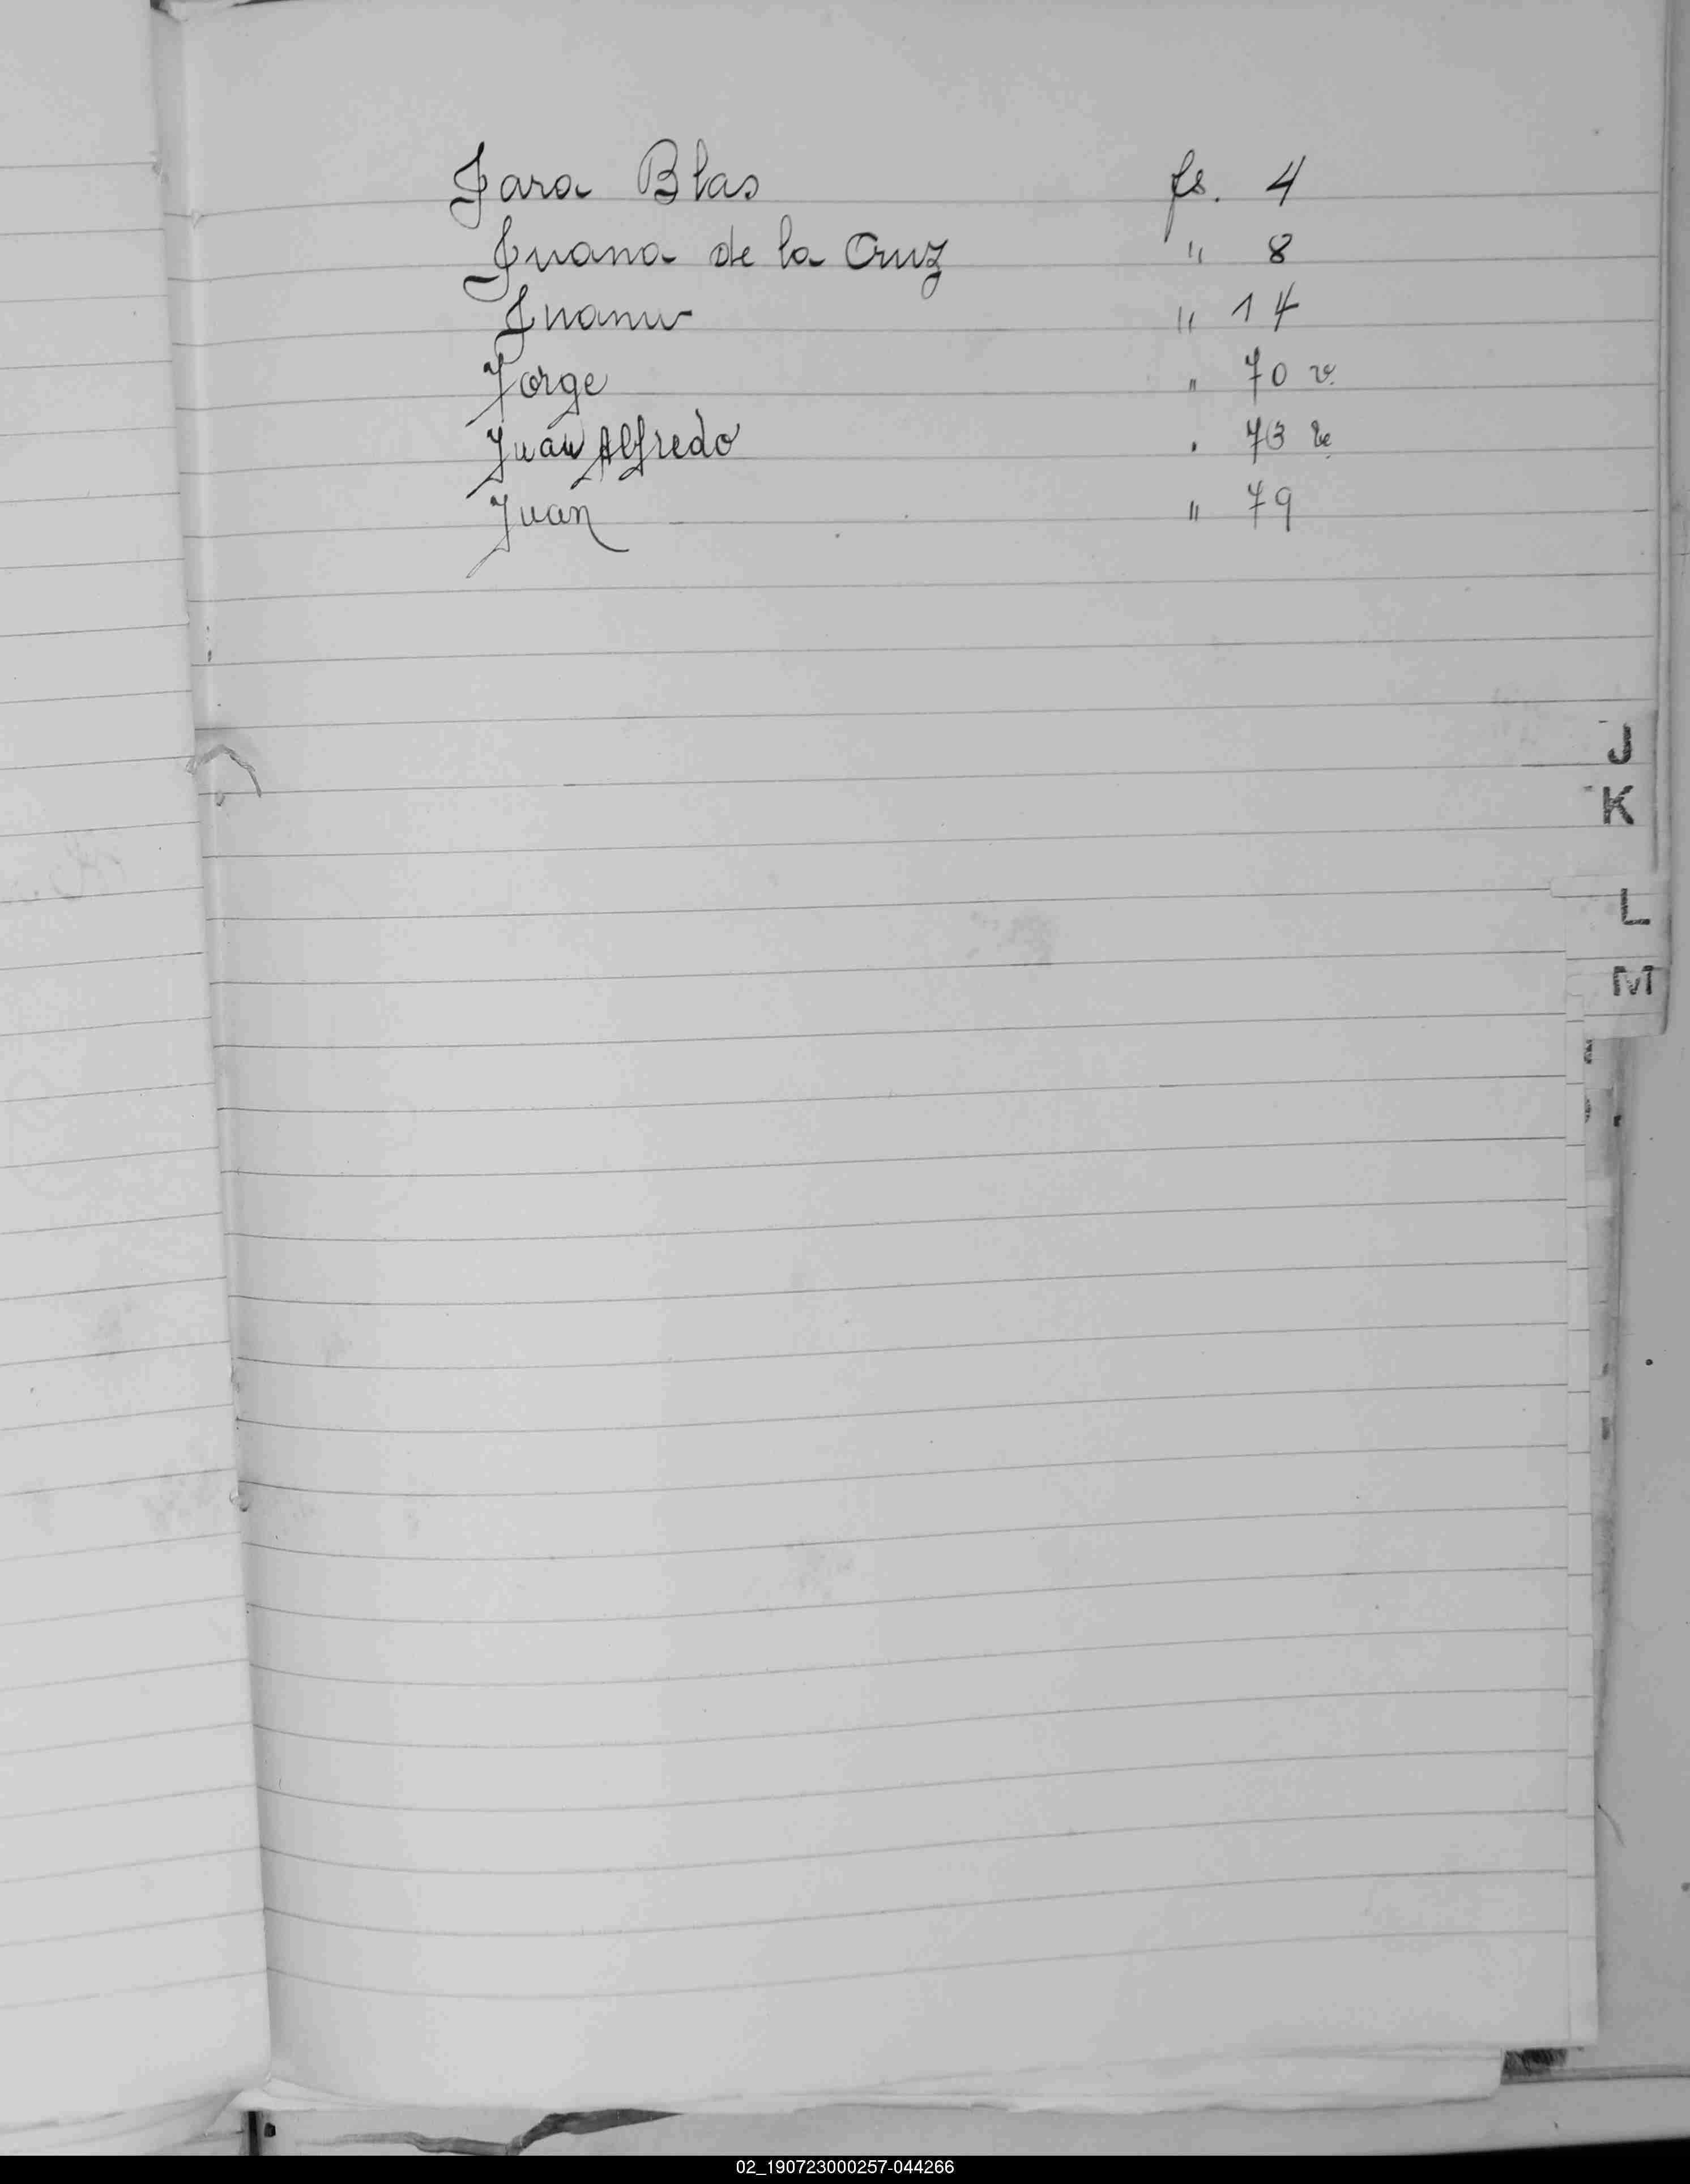 Jara Blas fs. 4
Juana de la Cruz " 8
Juana " 14
Jorge " 70 v.
Juan Alfredo . 73 v.
Juan " 79
J
K
L
M
02_190723000257-044266